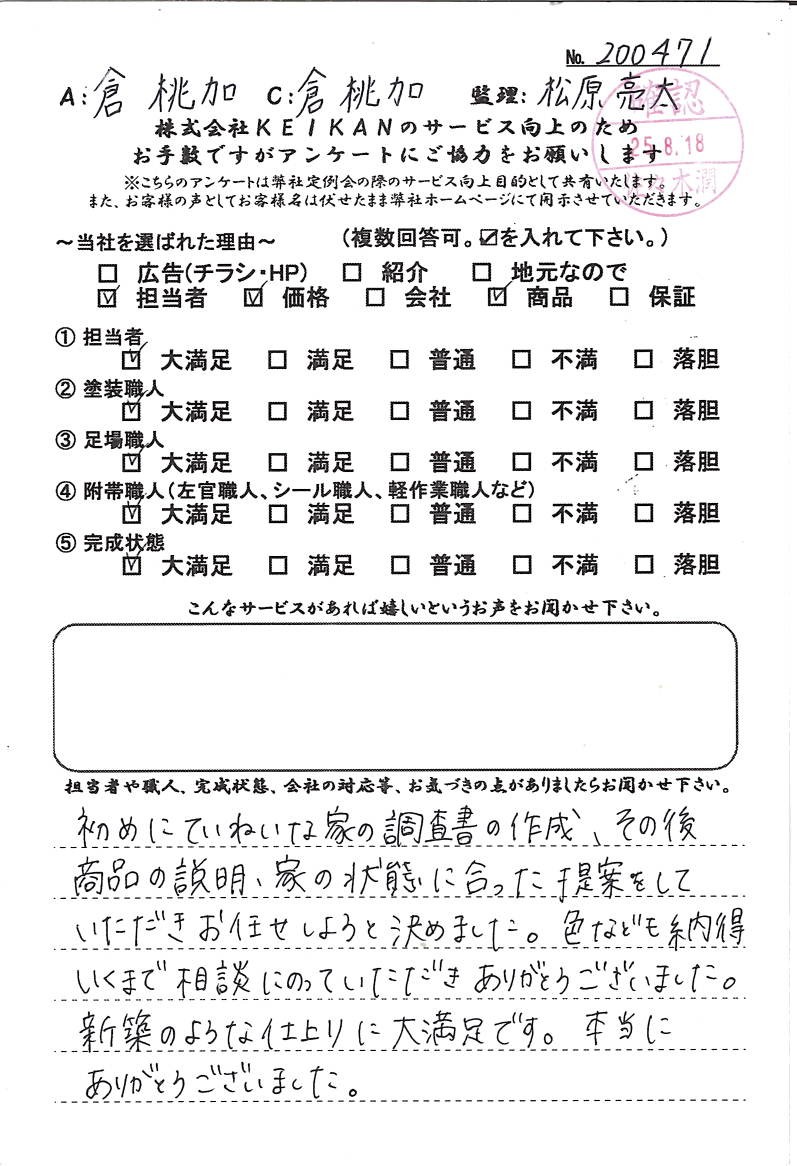 No. 200471
A:倉 桃加 C:倉桃加 監理:松原亮太
確認
25.8.18
佐々木潤
株式会社KEIKANのサービス向上のため
お手数ですがアンケートにご協力をお願いします
※こちらのアンケートは弊社定例会の際のサービス向上目的として共有いたします。
また、お客様の声としてお客様名は伏せたまま弊社ホームページにて開示させていただきます。
～当社を選ばれた理由～ (複数回答可。☑を入れて下さい。)
□ 広告(チラシ・HP) □ 紹介 □ 地元なので
☑ 担当者 ☑ 価格 □ 会社 ☑ 商品 □ 保証
① 担当者
☑ 大満足 □ 満足 □ 普通 □ 不満 □ 落胆
② 塗装職人
☑ 大満足 □ 満足 □ 普通 □ 不満 □ 落胆
③ 足場職人
☑ 大満足 □ 満足 □ 普通 □ 不満 □ 落胆
④ 附帯職人(左官職人、シール職人、軽作業職人など)
☑ 大満足 □ 満足 □ 普通 □ 不満 □ 落胆
⑤ 完成状態
☑ 大満足 □ 満足 □ 普通 □ 不満 □ 落胆
こんなサービスがあれば嬉しいというお声をお聞かせ下さい。
担当者や職人、完成状態、会社の対応等、お気づきの点がありましたらお聞かせ下さい。
初めにていねいな家の調査書の作成、その後
商品の説明、家の状態に合った提案をして
いただきお任せしようと決めました。色なども納得
いくまで相談にのっていただきありがとうございました。
新築のような仕上りに大満足です。本当に
ありがとうございました。